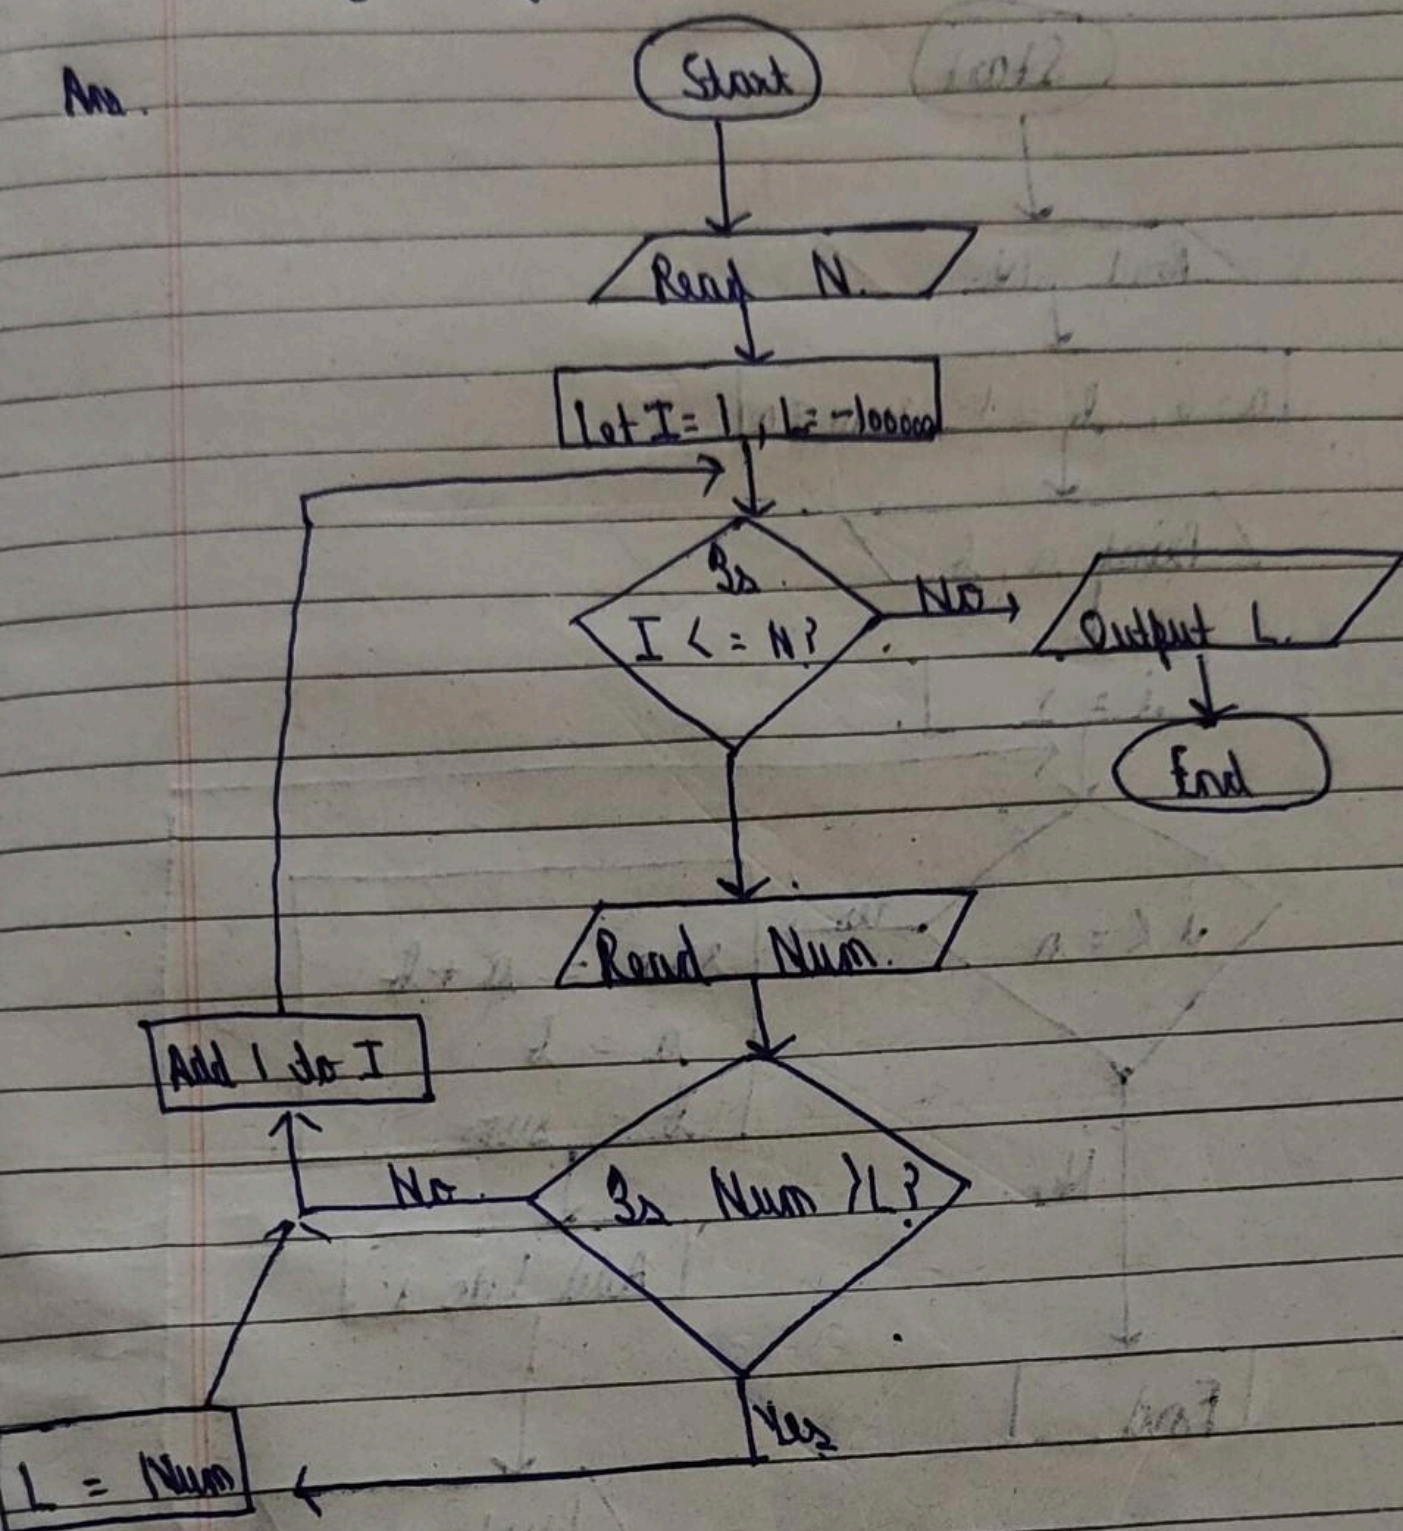 Ans.
Start
Read N.
Let I = 1, L = -100000
Is
I < = N?
No
Output L.
End
Read Num.
Add 1 to I
No
Is Num > L?
Yes
L = Num